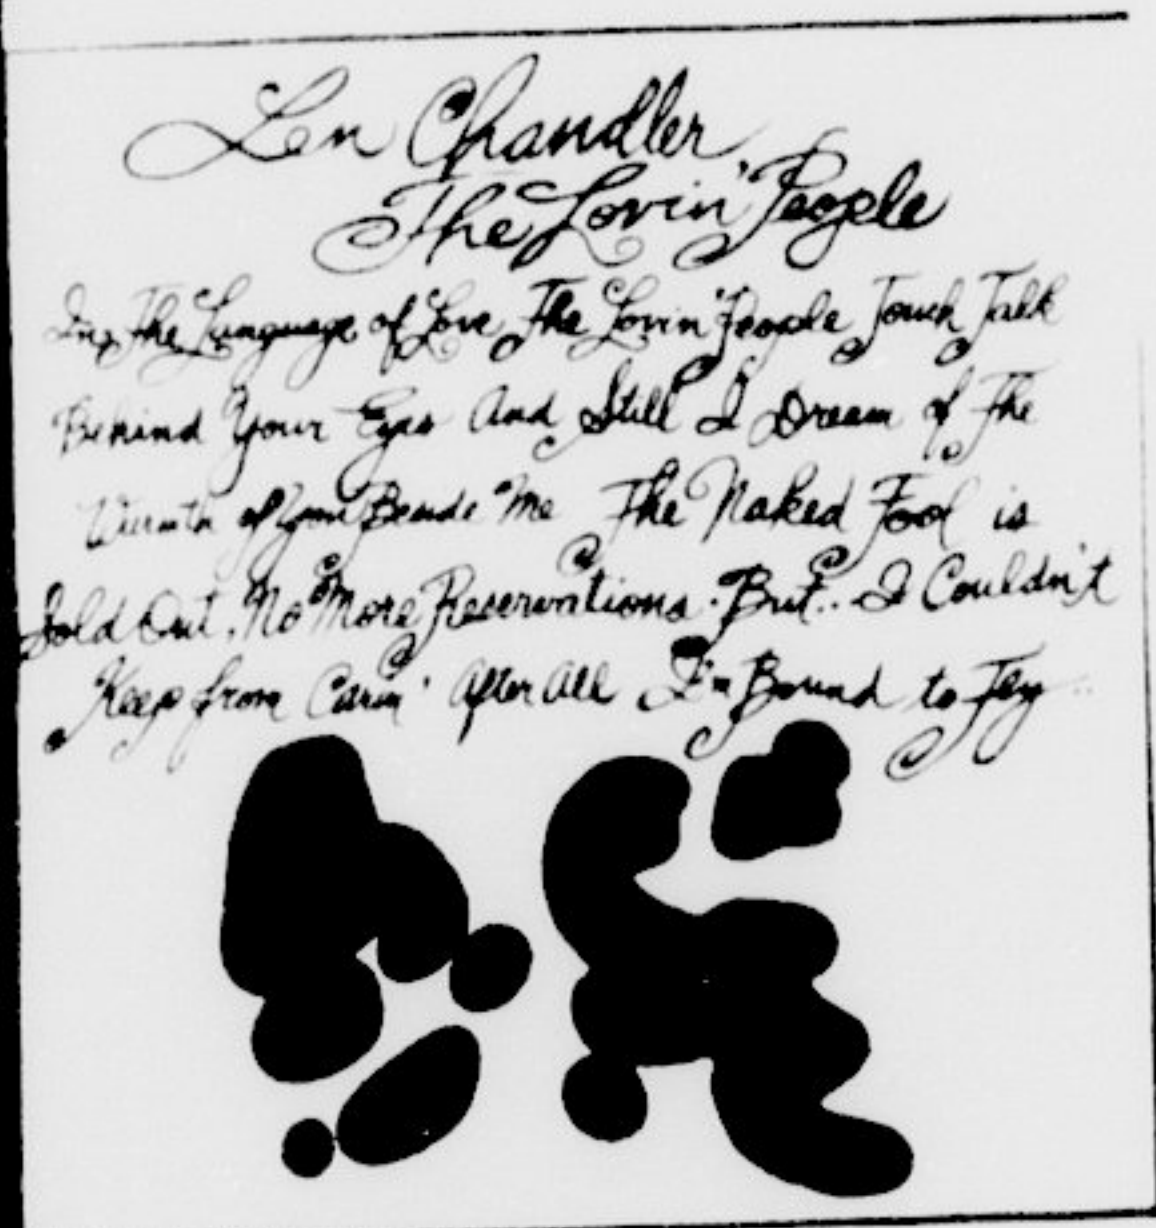 Len Chandler
The Lovin' People
In The Language of Love The Lovin' People Touch Talk
Behind Your Eyes And Still I Dream of The
Warmth of You Beside Me The Naked Fool is
Sold Out. No More Reservations. But.. I Couldn't
Keep from Carin' After All I'm Bound to